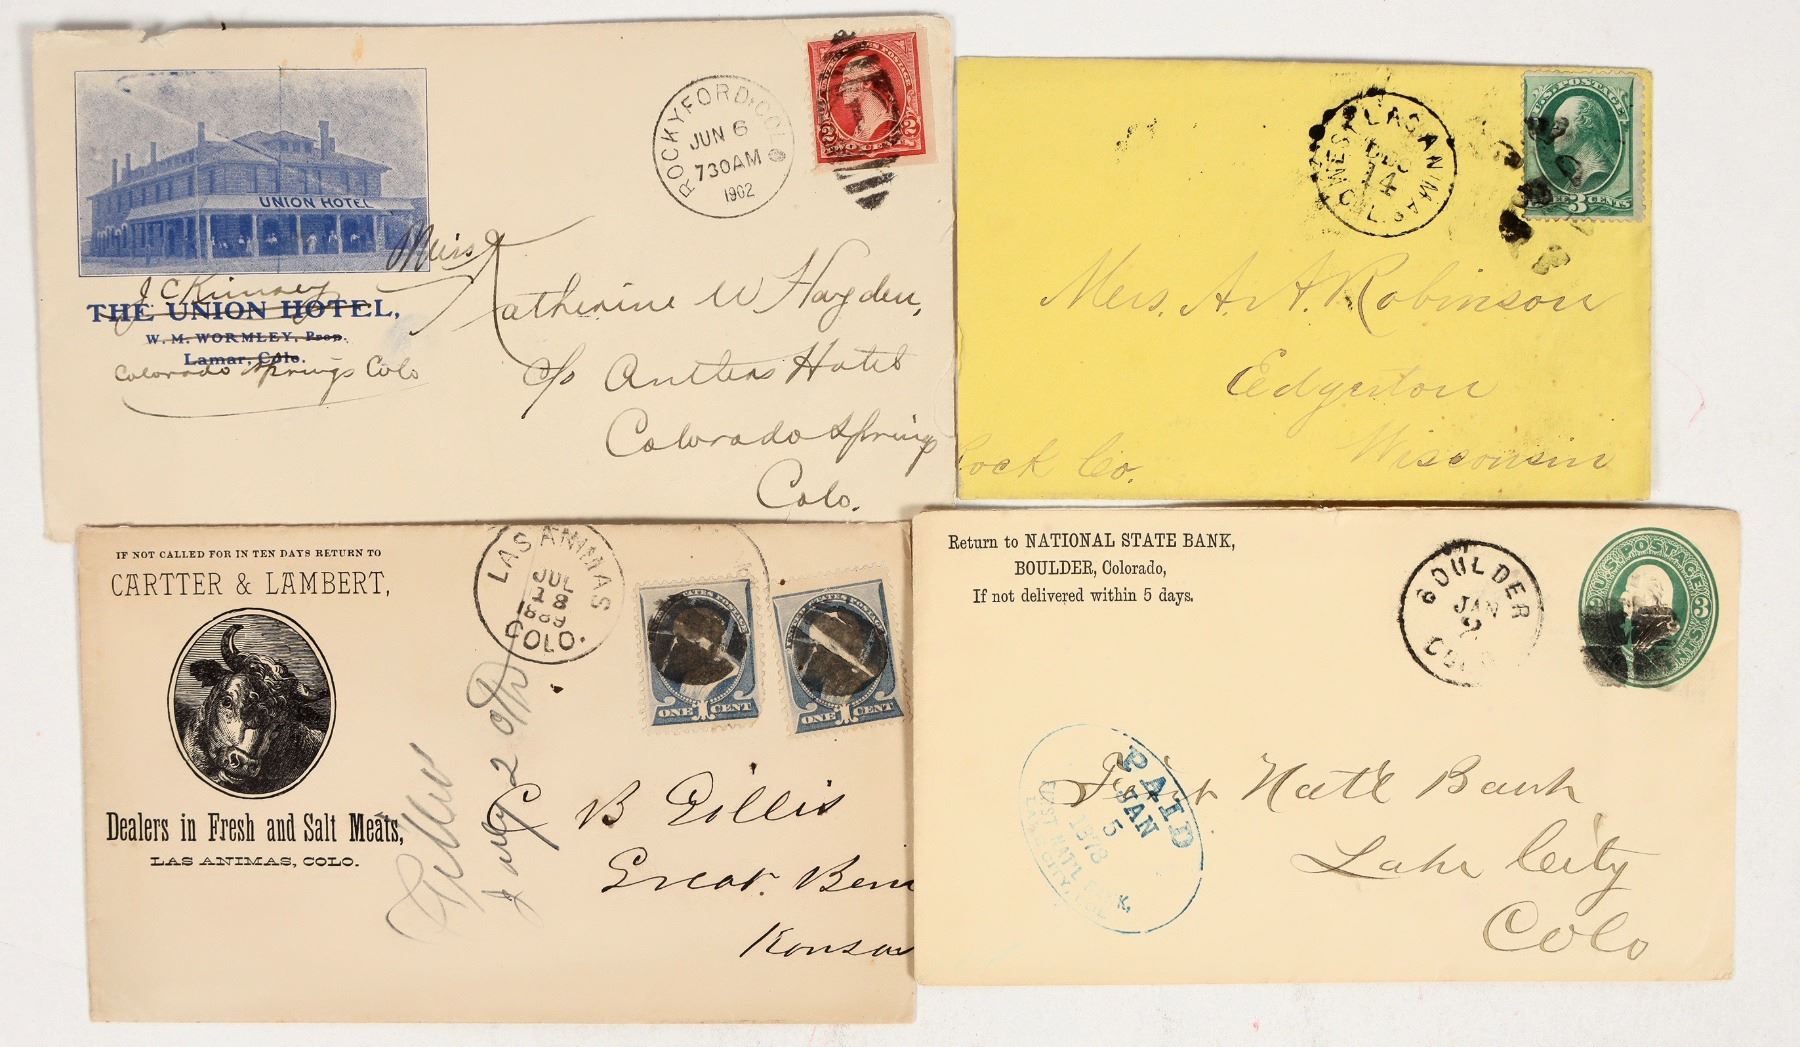 UNION HOTEL
J. C. Kinney
THE UNION HOTEL,
W. M. WORMLEY, Prop.
Lamar, Colo.
Colorado Springs Colo
ROCKYFORD, COLO.
JUN 6
730AM
1902
2 2
TWO CENTS
Miss
Katherine W Hayden,
c/o Antlers Hotel
Colorado Springs
Colo.
WEST LAS ANIMAS
DEC
14
COL
U.S. POSTAGE
3 CENTS
Mrs. A. A. Robinson
Edgerton
Wisconsin
Rock Co.
IF NOT CALLED FOR IN TEN DAYS RETURN TO
CARTTER & LAMBERT,
Dealers in Fresh and Salt Meats,
LAS ANIMAS, COLO.
LAS ANIMAS
JUL
18
1889
COLO.
ONE 1 CENT
ONE 1 CENT
C B Gillis
Great Bend
Kansas
Return to NATIONAL STATE BANK,
BOULDER, Colorado,
If not delivered within 5 days.
BOULDER
JAN
2
COLO
U.S. POSTAGE
3
PAID
JAN
5
1878
FIRST NAT'L BANK,
LAKE CITY, COL.
First Nat'l Bank
Lake City
Colo